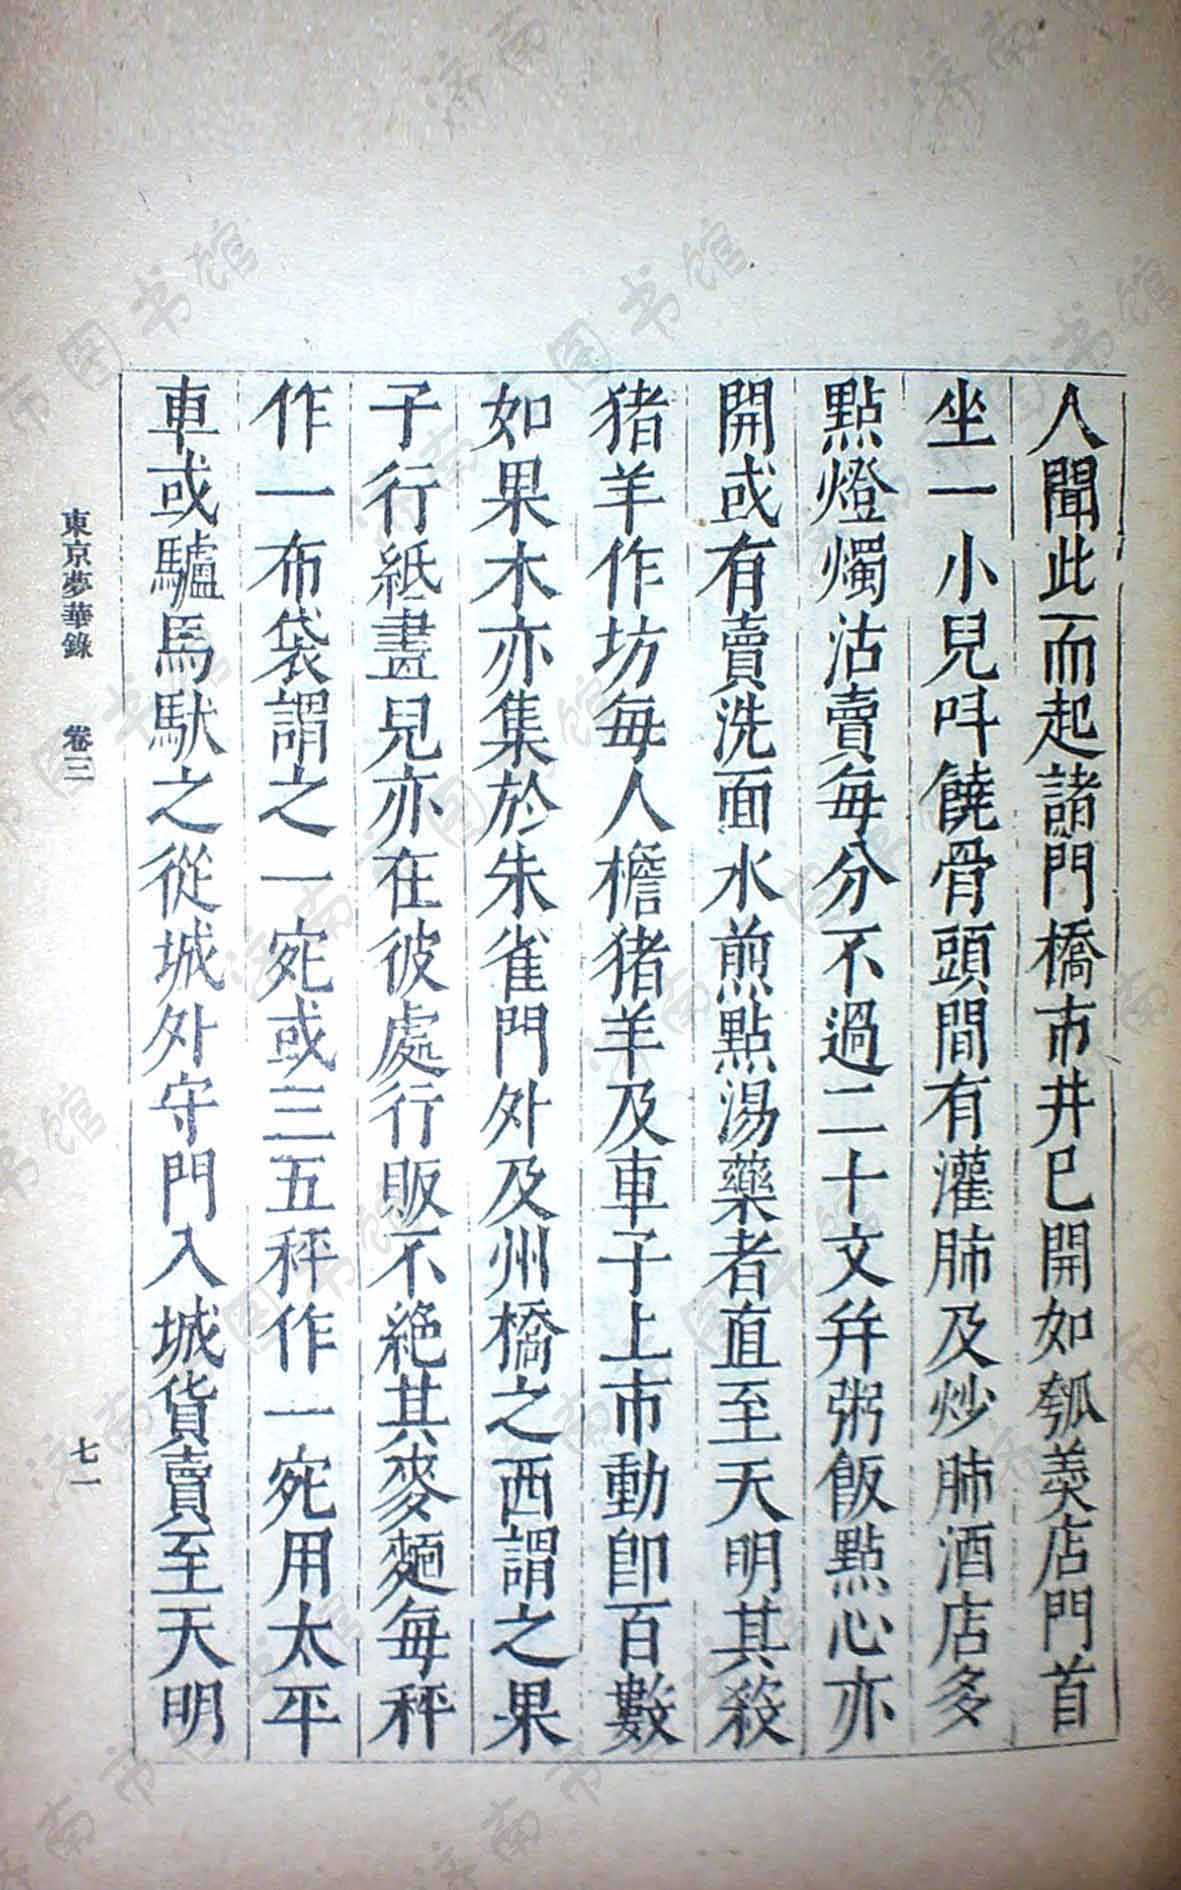 人聞此而起諸門橋市井已開如瓠羹店門首
坐一小兒叫饒骨頭間有灌肺及炒肺酒店多
點燈燭沽賣每分不過二十文并粥飯點心亦
開或有賣洗面水煎點湯藥者直至天明其殺
猪羊作坊每人檐猪羊及車子上市動即百數
如果木亦集於朱雀門外及州橋之西謂之果
子行紙畫兒亦在彼處行販不絕其麥麵每秤
作一布袋謂之一宛或三五秤作一宛用太平
車或驢馬馱之從城外守門入城貨賣至天明
東京夢華錄 卷三 七一
济南市图书馆